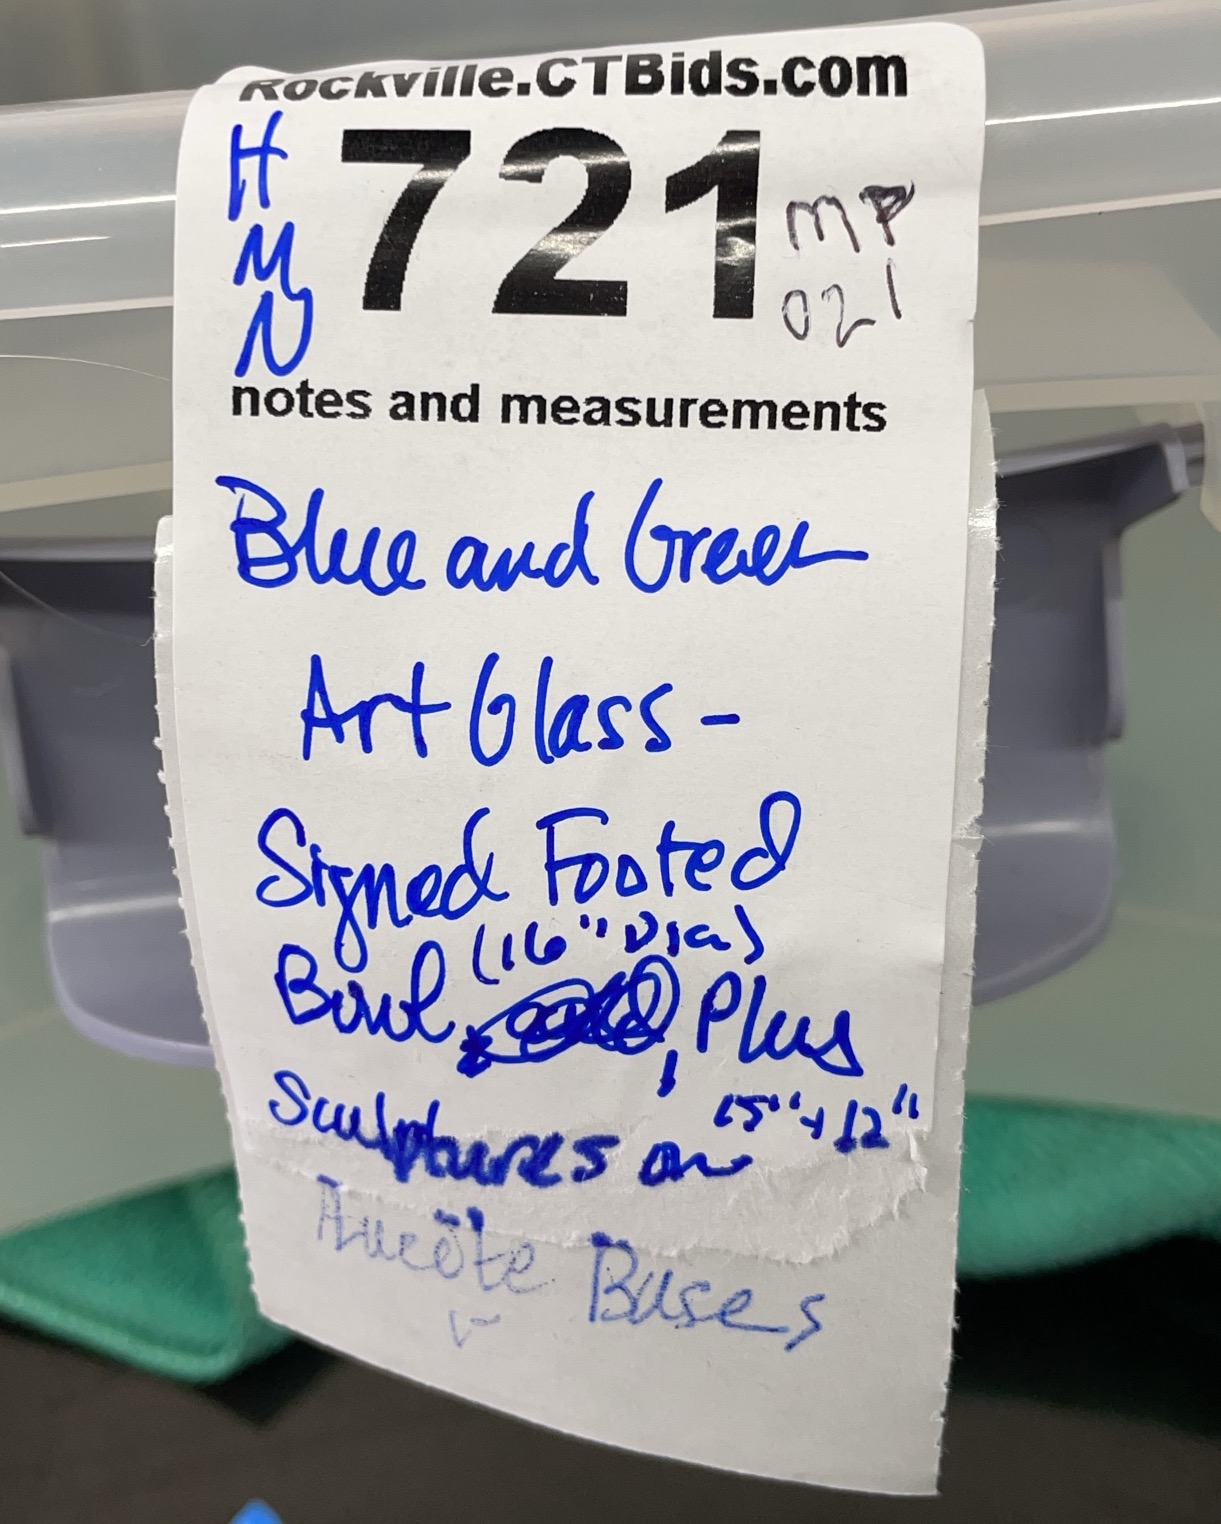 Rockville.CTBids.com
H
M
N
721
MP
021
notes and measurements
Blue and Green
Art Glass -
Signed Footed
(16" Dia)
Bowl, Plus
15" + 12"
Sculptures on
Bases